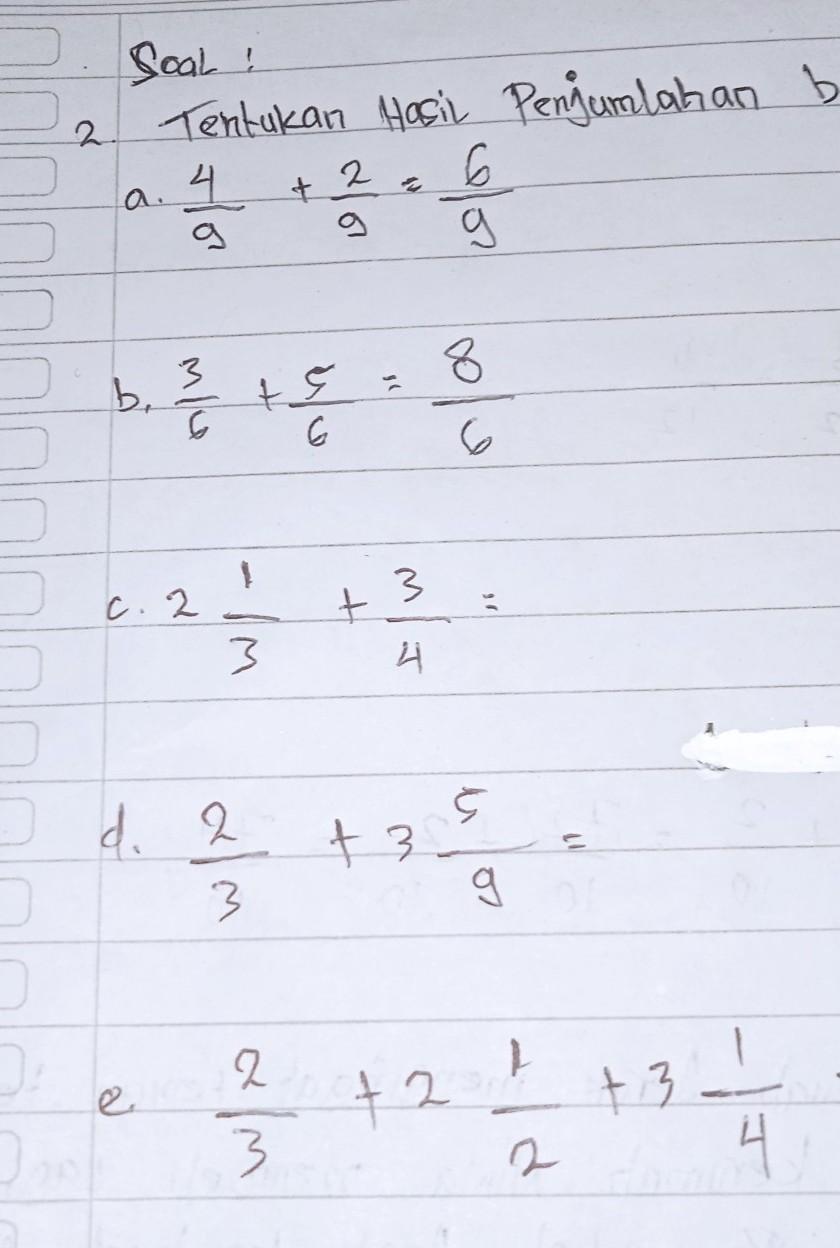 Soal :
2. Tentukan Hasil Penjumlahan b
a. 4/9 + 2/9 = 6/9
b. 3/6 + 5/6 = 8/6
c. 2 1/3 + 3/4 =
d. 2/3 + 3 5/9 =
e 2/3 + 2 1/2 + 3 1/4